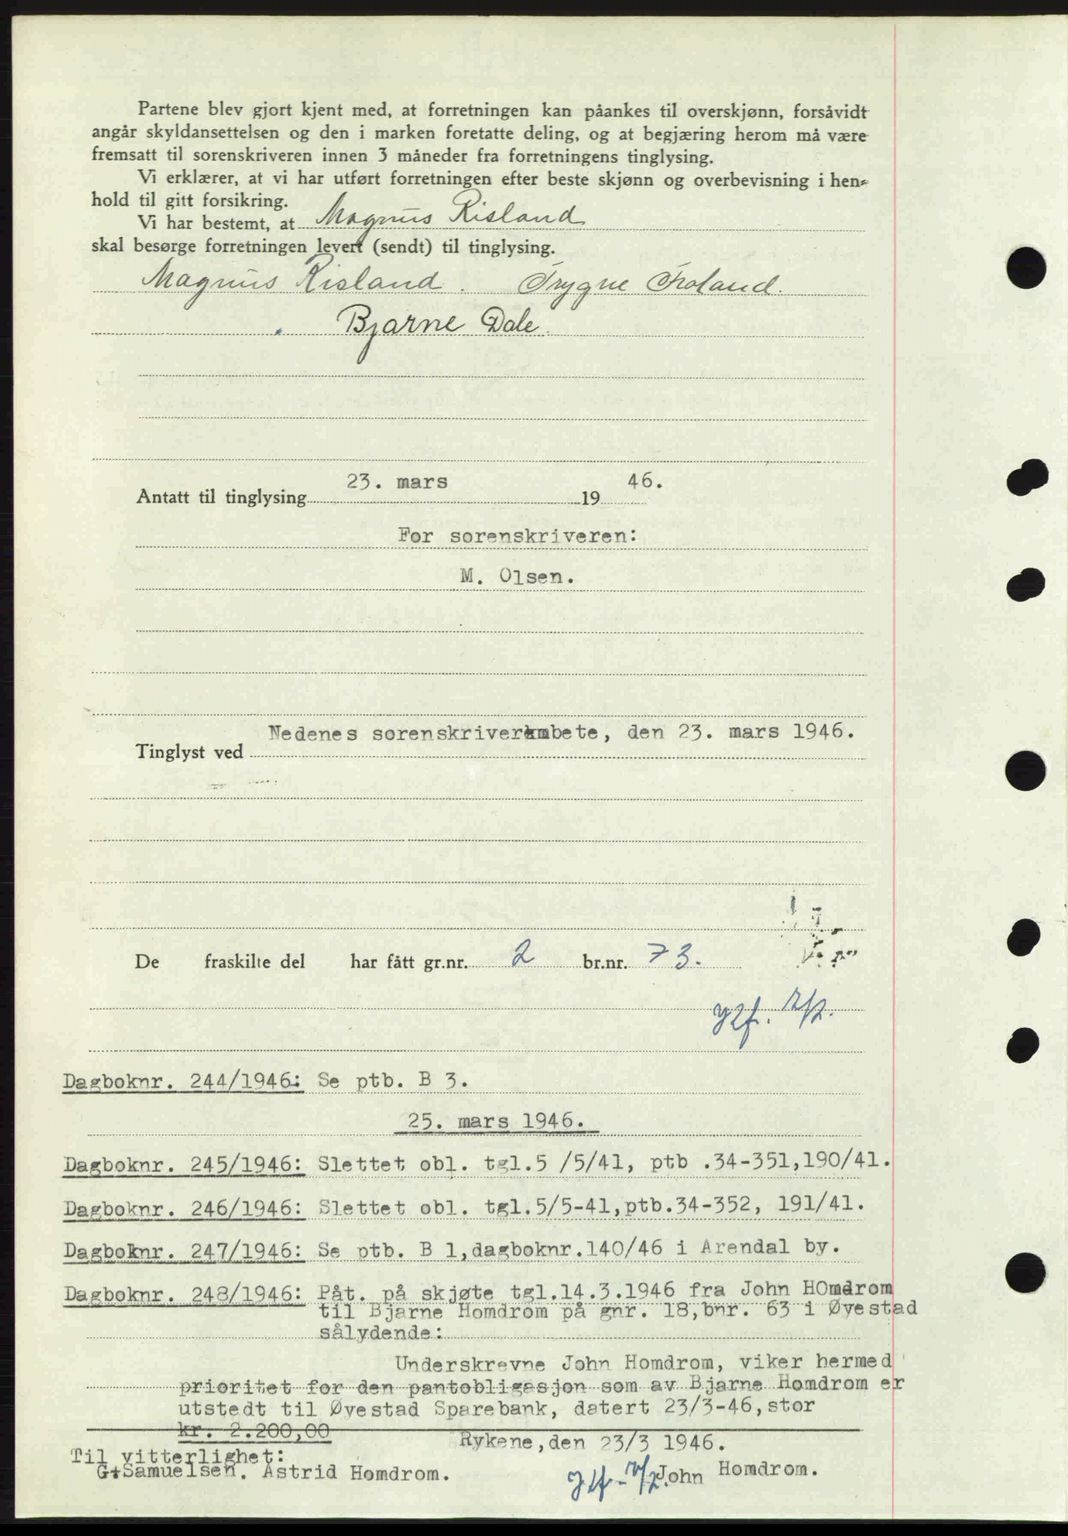 Partene blev gjort kjent med, at forretningen kan påankes til overskjønn, forsåvidt
angår skyldansettelsen og den i marken foretatte deling, og at begjæring herom må være
fremsatt til sorenskriveren innen 3 måneder fra forretningens tinglysing.
Vi erklærer, at vi har utført forretningen efter beste skjønn og overbevisning i hen-
hold til gitt forsikring.
Vi har bestemt, at Magnus Risland
skal besørge forretningen levert (sendt) til tinglysing.
Magnus Risland. Trygve Froland.
Bjarne Dale.
Antatt til tinglysing 23. mars 19 46.
For sorenskriveren:
M. Olsen.
Tinglyst ved Nedenes sorenskriverembete, den 23. mars 1946.
De fraskilte del har fått gr.nr. 2 br.nr. 73.
Dagboknr. 244/1946: Se ptb. B 3.
25. mars 1946.
Dagboknr. 245/1946: Slettet obl. tgl.5 /5/41, ptb .34-351,190/41.
Dagboknr. 246/1946: Slettet obl. tgl.5/5-41,ptb.34-352, 191/41.
Dagboknr. 247/1946: Se ptb. B 1,dagboknr.140/46 i Arendal by.
Dagboknr. 248/1946: Påt. på skjøte tgl.14.3.1946 fra John HOmdrom
til Bjarne Homdrom på gnr. 18,bnr. 63 i Øyestad
sålydende:
Underskrevne John Homdrom, viker hermed
prioritet for den pantobligasjon som av Bjarne Homdrom er
utstedt til Øyestad Sparebank, datert 23/3-46,stor
kr. 2.200,00
Rykene,den 23/3 1946.
Til vitterlighet:
G+Samuelsen. Astrid Homdrom. John Homdrom.